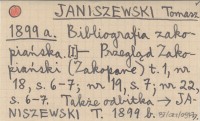 JANISZEWSKI Tomasz
1899 a. Bibliografia zako-
piańska. [I] — Przegląd Zako-
piański (Zakopane) t. 1, nr
18, s. 6-7; nr 19, s. 7; nr 22,
s. 6-7. Także odbitka → JA-
NISZEWSKI T. 1899 b.